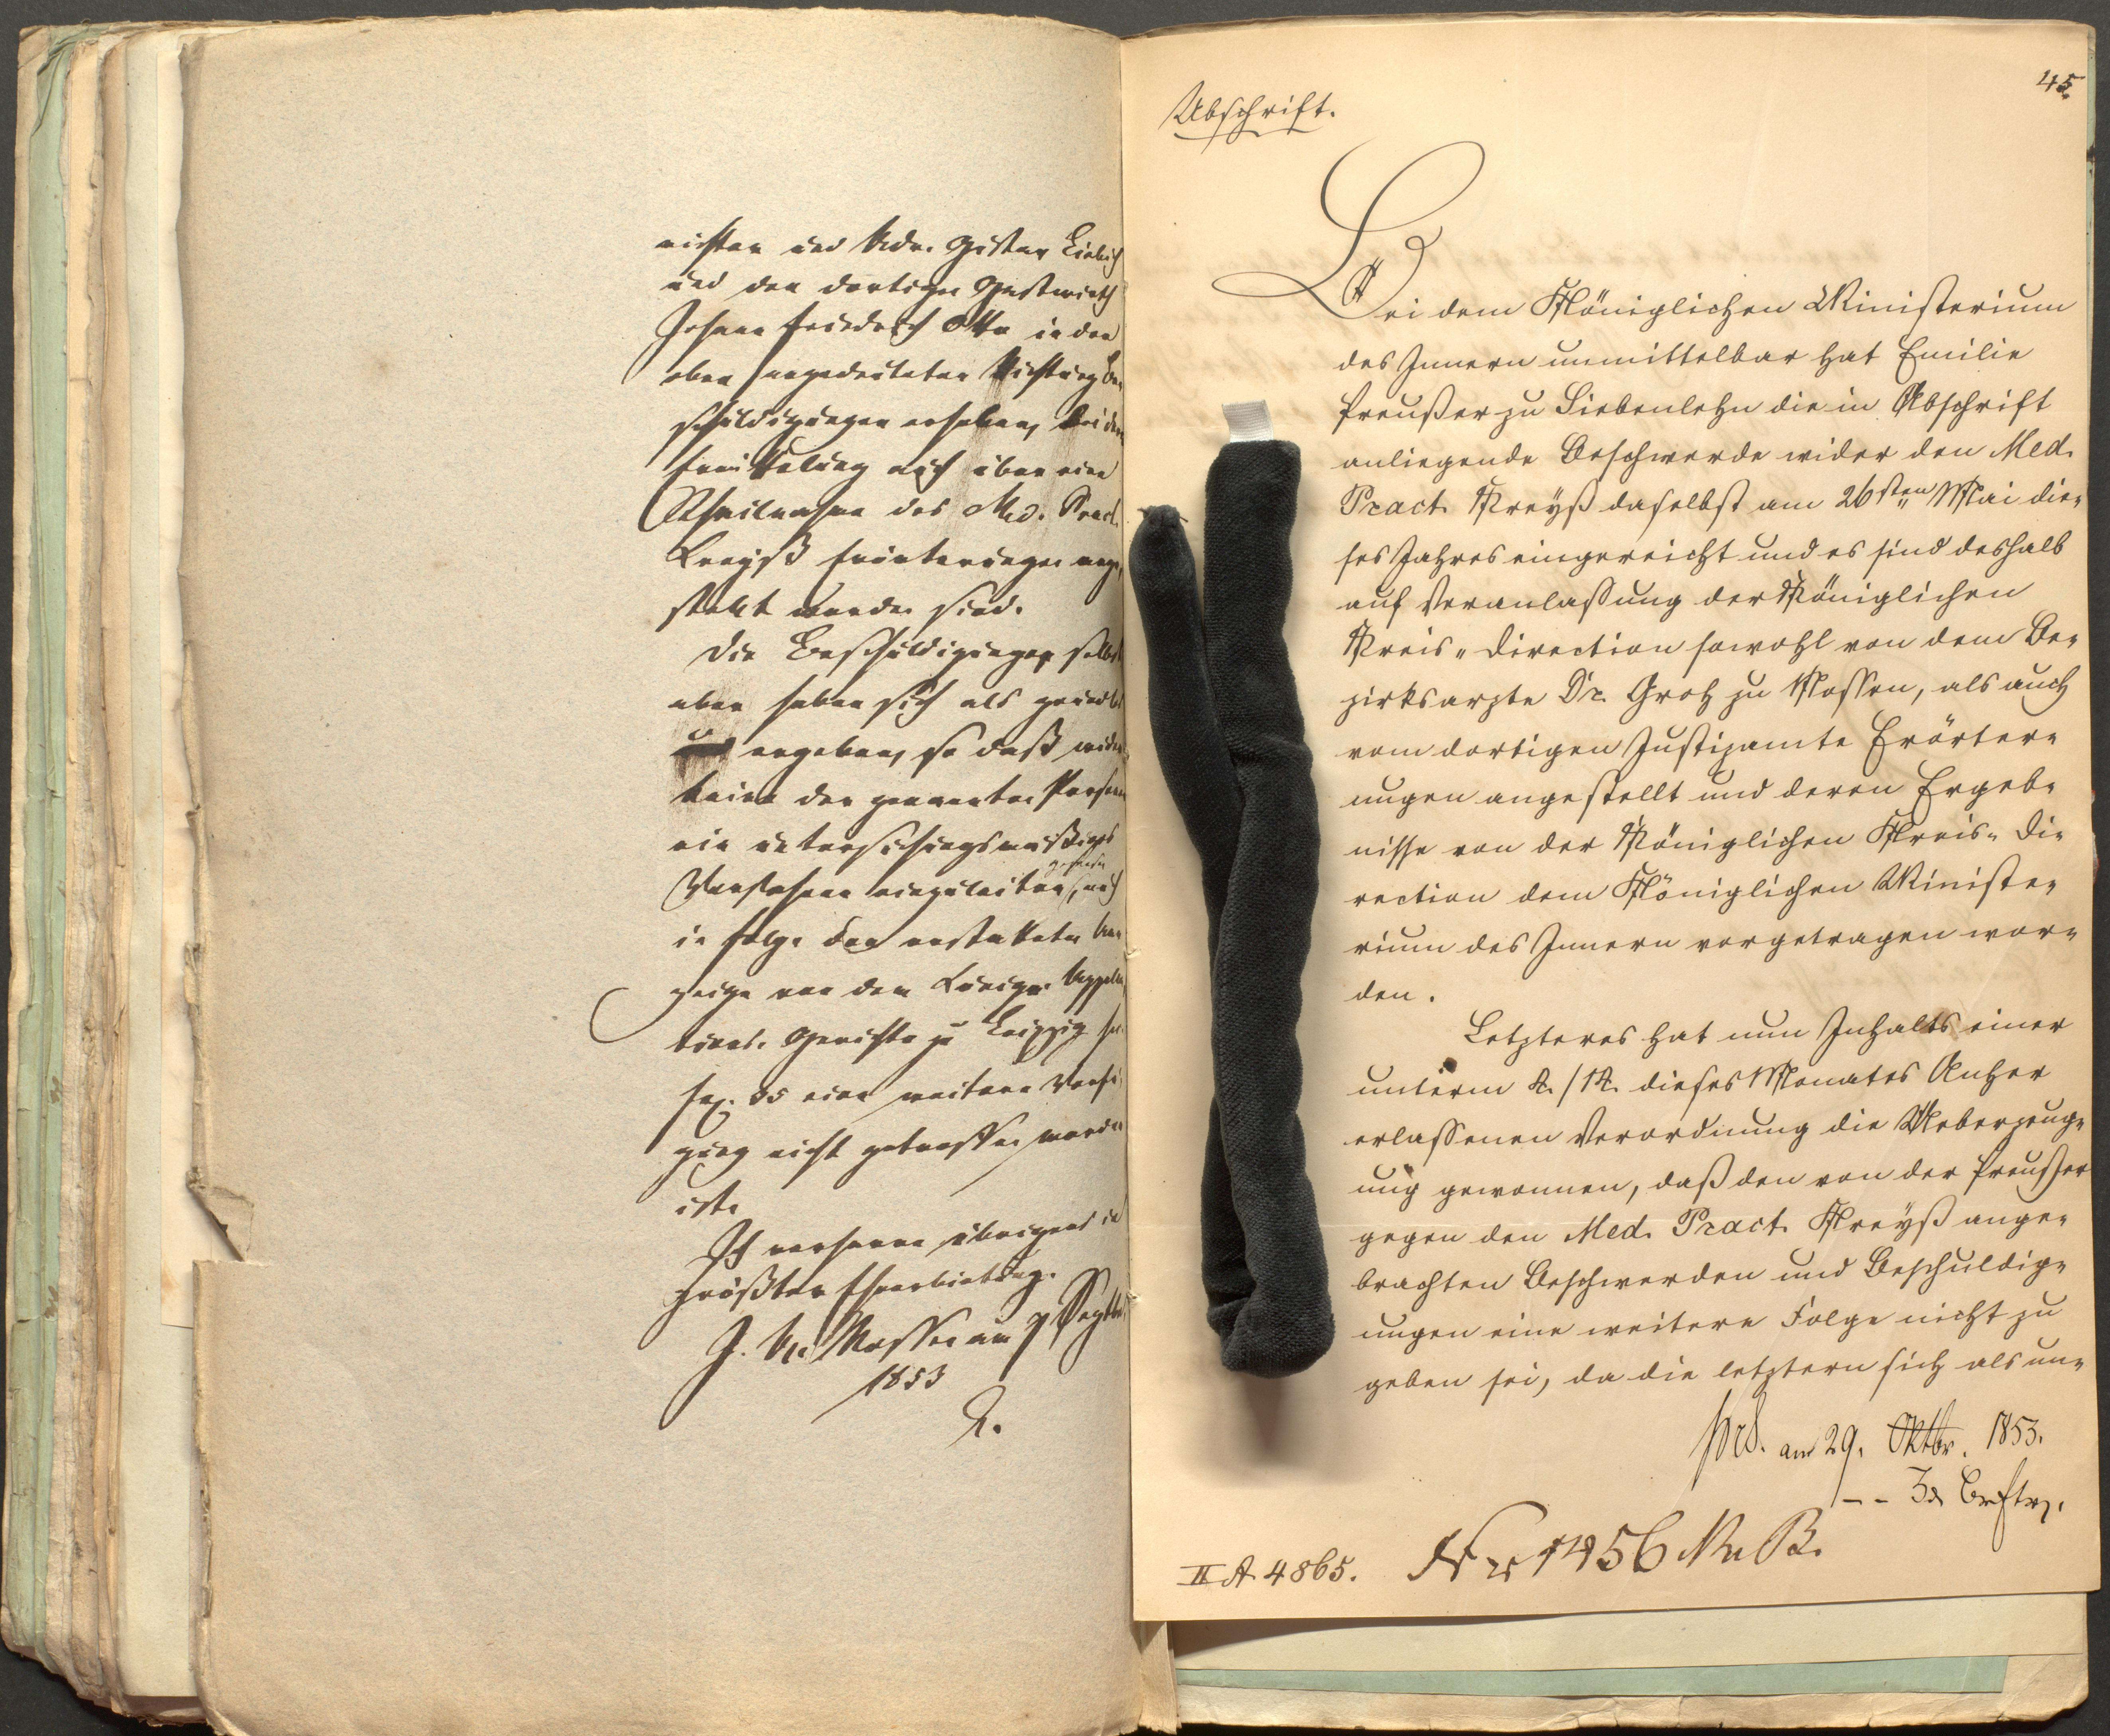 richter und Adv. Gustav Liebich
und den dortigen Gastwirth
Johann Friedrich Otto in der
oben angedeuteten Richtung Be
schuldigungen erhoben, bei deren
Ermittelung auch über eine
Theilnahme des Med. Pract.
Kreyß Erörterungen ange
stellt worden sind.
Die Beschuldigungen selbst
aber haben sich als
ergeben, so daß wider
keine der genannten Personen
ein untersuchungsmäßiges
Verfahren einzuleiten gewesen, auch
in Folge der erstatteten An
zeige von dem Königl. Appella
tions-Gerichte zu Leipzig
85 eine weitere Verfü
gung nicht getroffen worden
ist.
Ich verharre übrigens in
größter Ehrerbietung.
J. A. Nossen am 7 Septbr.
1853
45.
Abschrift.
Bei dem Königlichen Ministerium
des Innern unmittelbar hat Emilie
Preußer zu Siebenlehn die in Abschrift
anliegende Beschwerde wider den Med.
Pract. Kreyß daselbst am 26sten Mai die-
ses Jahres eingereicht und es sind deshalb
auf Veranlassung der Königlichen
Kreis-Direction sowohl von dem Be-
zirksarzte Dr. Groh zu Nossen, als auch
vom dortigen Justizamte Erörter-
ungen angestellt und deren Ergeb-
nisse von der Königlichen Kreis-Di-
rection dem Königlichen Ministe-
rium des Innern vorgetragen wor-
den.
Letzteres hat nun Inhalts einer
unterm 4./14. dieses Monates Anher
erlassenen Verordnung die Ueberzeug-
ung gewonnen, daß den von der Preußer
gegen den Med. Pract. Kreyß ange-
brachten Beschwerden und Beschuldig-
ungen eine weitere Folge nicht zu
geben sei, da die letztern sich als un-
am 29. Oktbr. 1853.
II A. 4865. 1456